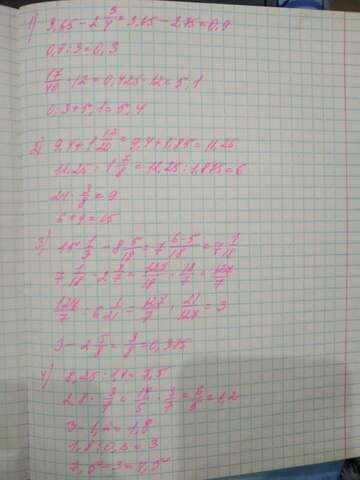 1) 3,65 - 2 3/4 = 3,65 - 2,75 = 0,9
0,9 : 3 = 0,3
17/40 · 12 = 0,425 · 12 = 5,1
0,3 + 5,1 = 5,4
2) 9,4 + 1 17/20 = 9,4 + 1,85 = 11,25
11,25 : 1 7/8 = 11,25 : 1,875 = 6
24 · 3/8 = 9
6 + 9 = 15
3) 15 1/3 - 8 5/18 = 7 6-5/18 = 7 1/18
7 1/18 : 2 4/7 = 127/18 · 18/7 = 127/7
127/7 : 6 1/21 = 127/7 · 21/127 = 3
3 - 2 5/8 = 3/8 = 0,375
4)
2,8 · 3/7 = 14/5 · 3/7 = 6/5 = 1,2
3 - 1,2 = 1,8
1,8 : 0,6 = 3
7,5 - 3 = 4,5